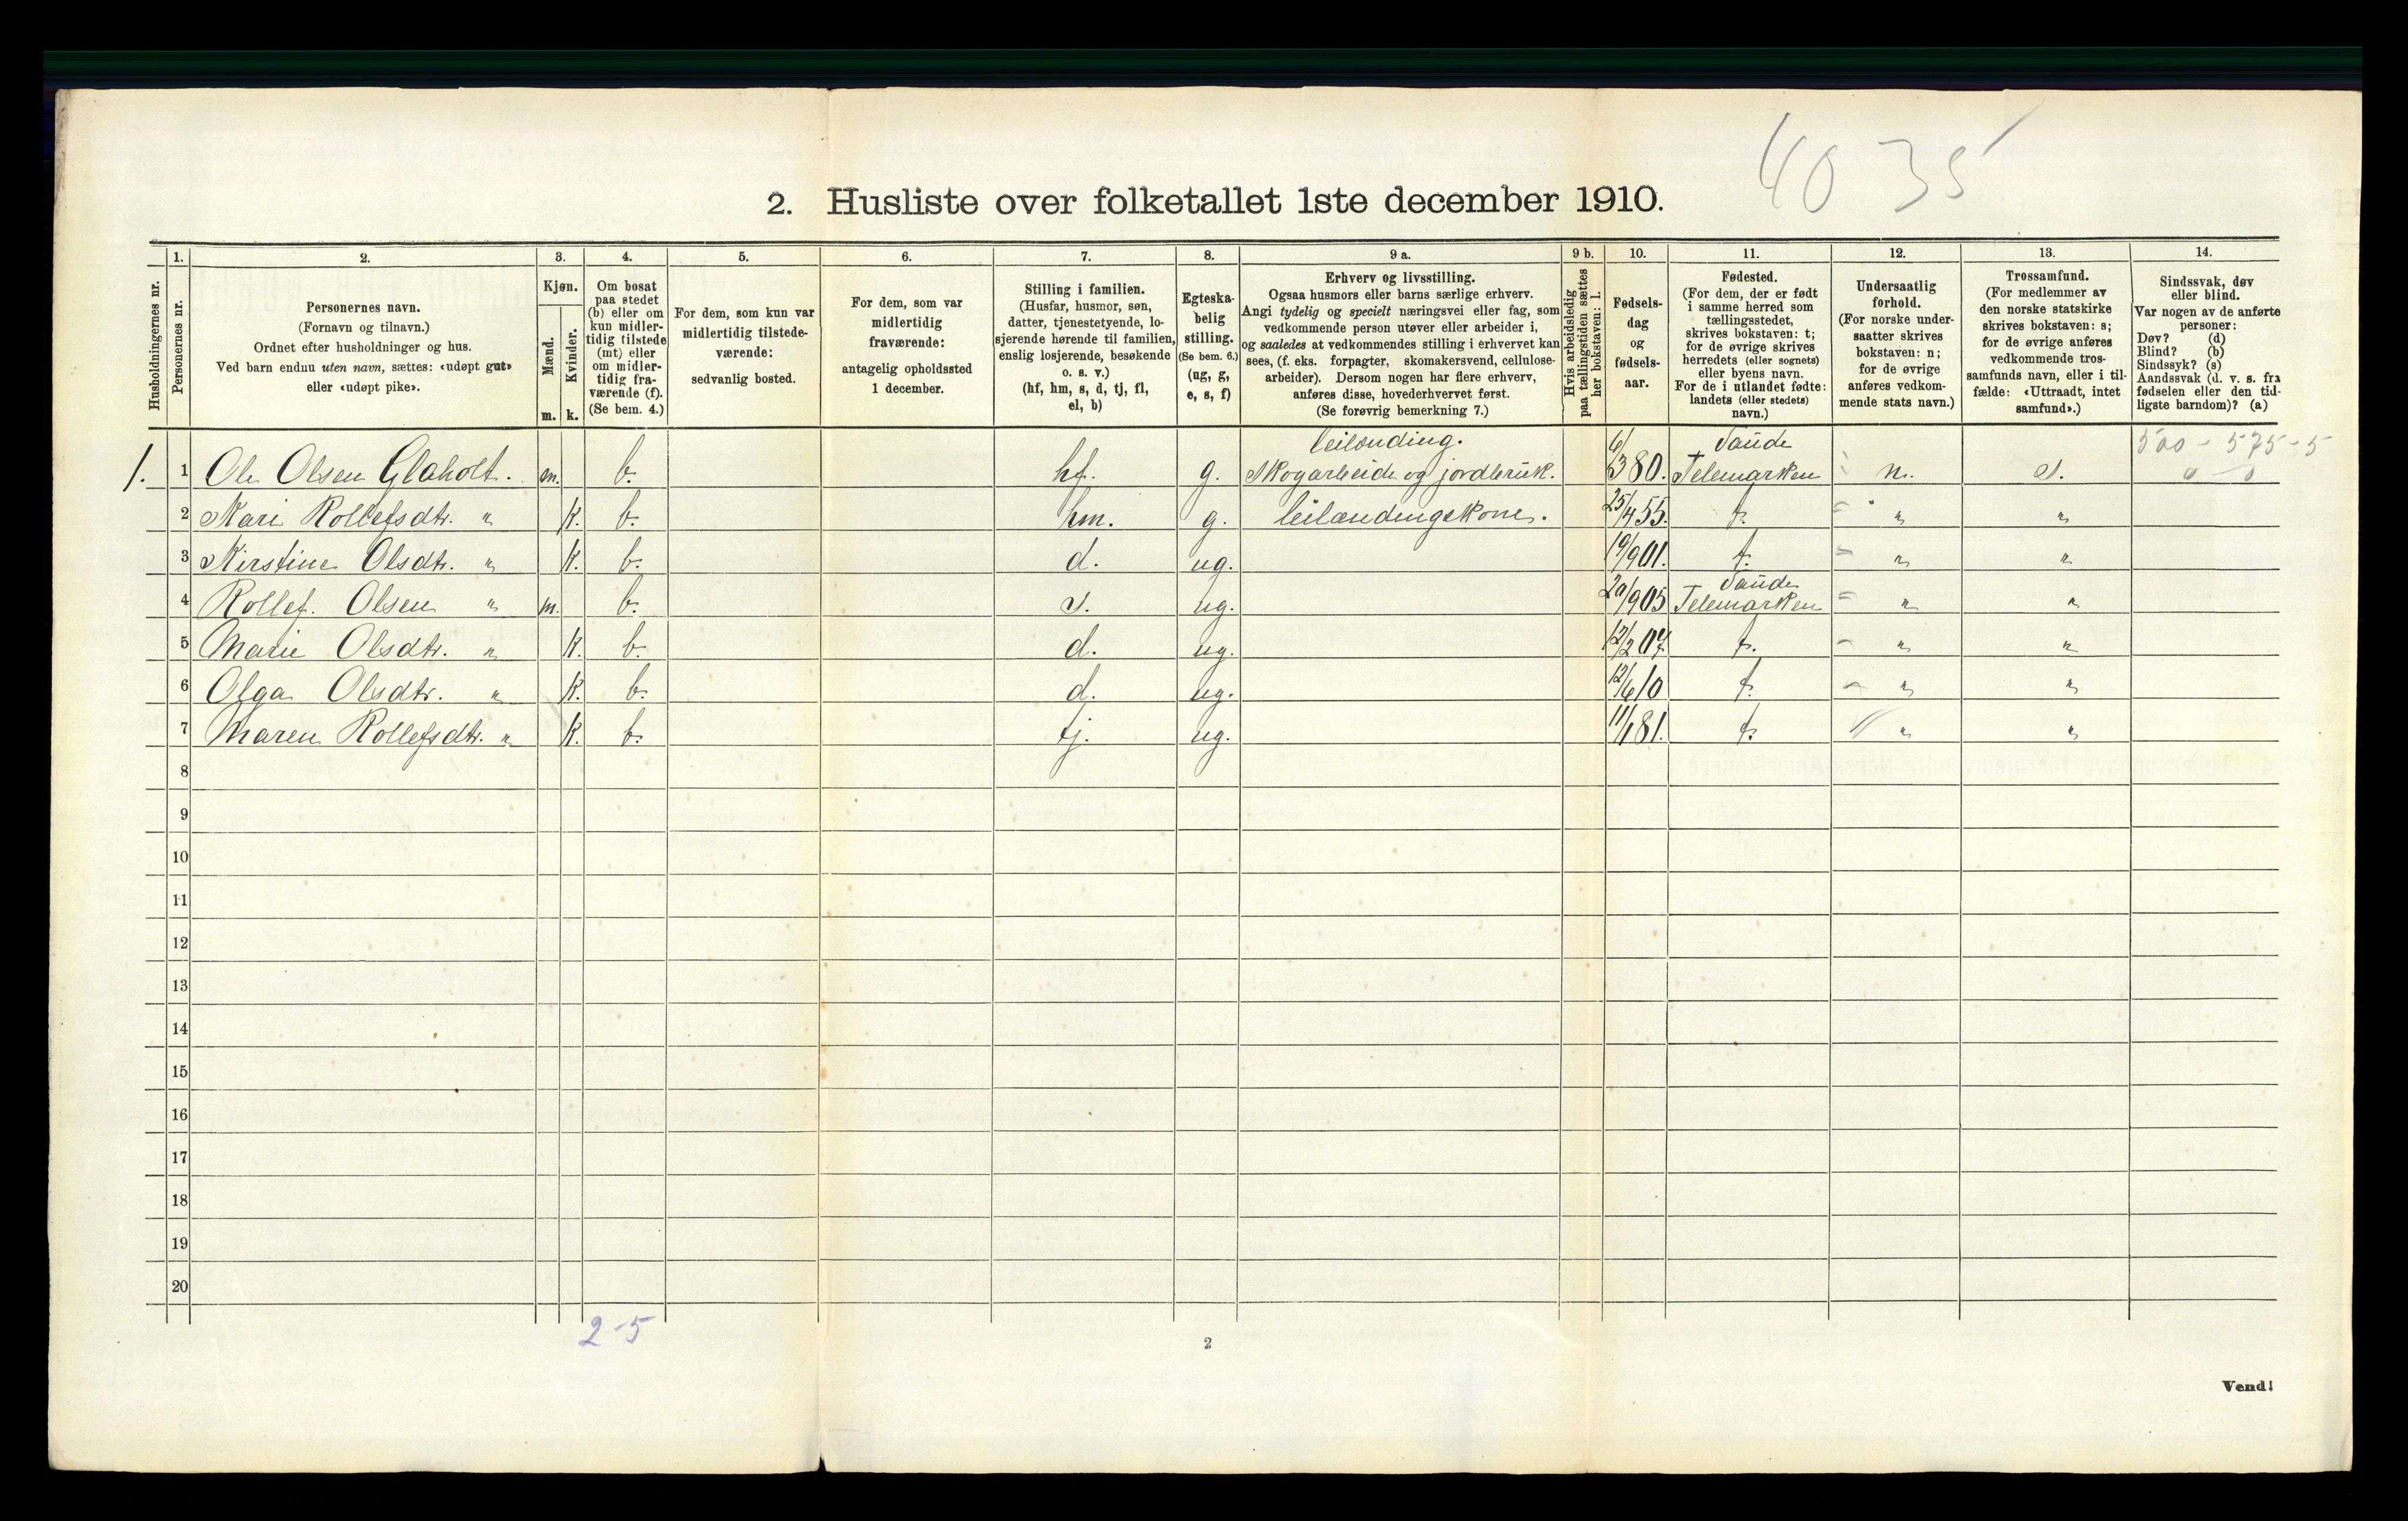 40 35
2. Husliste over folketallet 1ste december 1910.
Husholdningernes nr.
1.
Personernes nr.
2.
Personernes navn.
(Fornavn og tilnavn.)
Ordnet efter husholdninger og hus.
Ved barn endnu uten navn, sættes: «udøpt gut»
eller «udøpt pike».
3.
Kjøn.
Mænd.
m.
Kvinder.
k.
4.
Om bosat
paa stedet
(b) eller om
kun midler-
tidig tilstede
(mt) eller
om midler-
tidig fra-
værende (f).
(Se bem. 4.)
5.
For dem, som kun var
midlertidig tilstede-
værende:
sedvanlig bosted.
6.
For dem, som var
midlertidig
fraværende:
antagelig opholdssted
1 december.
7.
Stilling i familien.
(Husfar, husmor, søn,
datter, tjenestetyende, lo-
sjerende hørende til familien,
enslig losjerende, besøkende
o. s. v.)
(hf, hm, s, d, tj, fl,
el, b)
8.
Egteska-
belig
stilling.
(Se bem. 6.)
(ug, g,
e, s, f)
9 a.
Erhverv og livsstilling.
Ogsaa husmors eller barns særlige erhverv.
Angi tydelig og specielt næringsvei eller fag, som
vedkommende person utøver eller arbeider i,
og saaledes at vedkommendes stilling i erhvervet kan
sees, (f. eks. forpagter, skomakersvend, cellulose-
arbeider). Dersom nogen har flere erhverv,
anføres disse, hovederhvervet først.
(Se forøvrig bemerkning 7.)
9 b.
Hvis arbeidsledig
paa tællingstiden sættes
her bokstaven: l.
10.
Fødsels-
dag
og
fødsels-
aar.
11.
Fødested.
(For dem, der er født
i samme herred som
tællingsstedet,
skrives bokstaven: t;
for de øvrige skrives
herredets (eller sognets)
eller byens navn.
For de i utlandet fødte:
landets (eller stedets)
navn.)
12.
Undersaatlig
forhold.
(For norske under-
saatter skrives
bokstaven: n;
for de øvrige
anføres vedkom-
mende stats navn.)
13.
Trossamfund.
(For medlemmer av
den norske statskirke
skrives bokstaven: s;
for de øvrige anføres
vedkommende tros-
samfunds navn, eller i til-
fælde: «Uttraadt, intet
samfund».)
14.
Sindssvak, døv
eller blind.
Var nogen av de anførte
personer:
Døv? (d)
Blind? (b)
Sindssyk? (s)
Aandssvak (d. v. s. fra
fødselen eller den tid-
ligste barndom)? (a)
leilænding. Saude 500 - 575 - 5
1. 1 Ole Olsen Glaholt. m. b. hf. g. skogarbeide og jordbruk. 6/3 80. Telemarken n. s. 0 - 0
2 Kari Rollefsdtr. " k. b. hm. g. leilændingskone. 25/4 55. t. " "
3 Kirstine Olsdtr. " k. b. d. ug. 19/9 01. t. " "
Saude
4 Rollef. Olsen " m. b. s. ug. 29/9 05 Telemarken " "
5 Marie Olsdtr. " k. b. d. ug. 12/2 07. t. " "
6 Olga Olsdtr. " k. b. d. ug. 12/6 10 t. " "
7 Maren Rollefsdtr. " k. b. tj. ug. 11/1 81. t. " "
8
9
10
11
12
13
14
15
16
17
18
19
20
2-5
2
Vend!